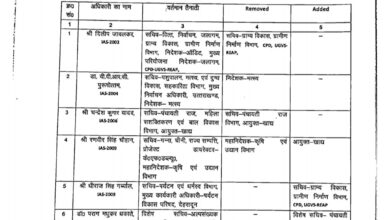 क्र0 सं0 | अधिकारी का नाम | वर्तमान तैनाती | Removed | Added
1 | 2 | 3 | 4 | 5
1 | श्री दिलीप जावलकर, IAS-2003 | सचिव-वित्त, निर्वाचन, जलागम, ग्राम्य विकास, ग्रामीण निर्माण विभाग, निदेशक-ऑडिट, मुख्य परियोजना निदेशक-जलागम, CPD-UGVS-REAP, | सचिव-ग्राम्य विकास, ग्रामीण निर्माण विभाग, CPD, UGVS-REAP, | –
2 | डा. वी.पी.आर.सी. पुरुषोत्तम, IAS-2004 | सचिव-पशुपालन, मत्स्य, एवं दुग्ध विकास, सहकारिता विभाग, मुख्य निर्वाचन अधिकारी, उत्तराखण्ड, निदेशक- मत्स्य | निदेशक-मत्स्य | –
3 | श्री चन्द्रेश कुमार यादव, IAS-2006 | सचिव-पंचायती राज, महिला सशक्तिकरण एवं बाल विकास विभाग, आयुक्त-खाद्य | सचिव-पंचायती राज विभाग, आयुक्त-खाद्य | –
4 | श्री रणवीर सिंह चौहान, IAS-2009 | सचिव-गन्ना, चीनी, राज्य सम्पत्ति, महानिदेशक-कृषि एवं उद्यान विभाग | महानिदेशक-कृषि एवं उद्यान विभाग | आयुक्त-खाद्य
5 | श्री धीराज सिंह गर्ब्याल, IAS-2009 | सचिव-पर्यटन एवं धर्मस्व विभाग, मुख्य कार्यकारी अधिकारी-पर्यटन विकास परिषद, देहरादून | – | सचिव-ग्राम्य विकास, ग्रामीण निर्माण विभाग, CPD, UGVS-REAP
6 | डॉ0 पराग मधुकर धकाते, | विशेष सचिव-अल्पसंख्यक | – | विशेष सचिव-पंचायती